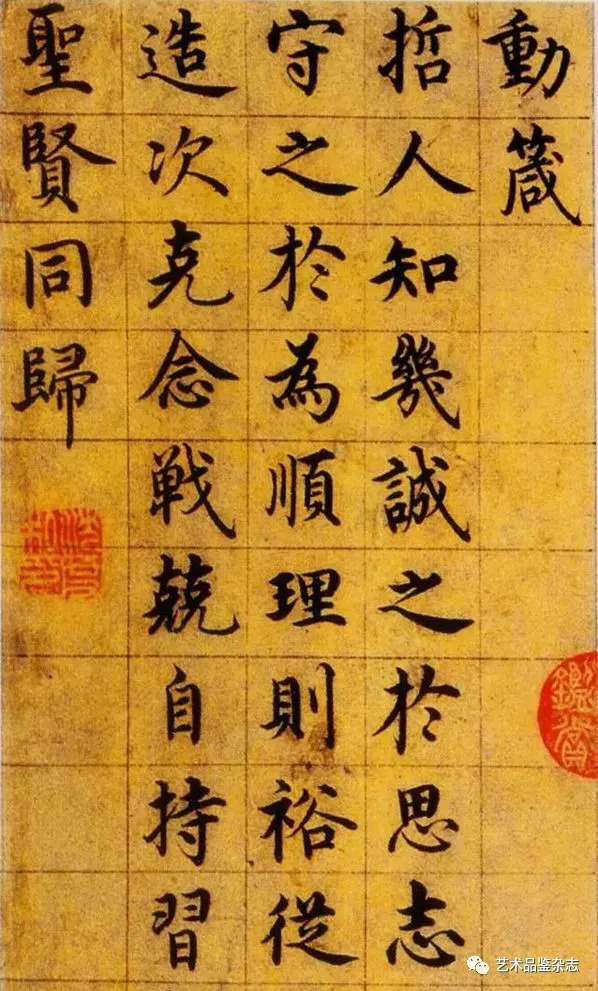 動箴
哲人知幾誠之於思志
守之於為順理則裕從
造次克念戦兢自持習
聖賢同歸
鑑賞
艺术品鉴杂志